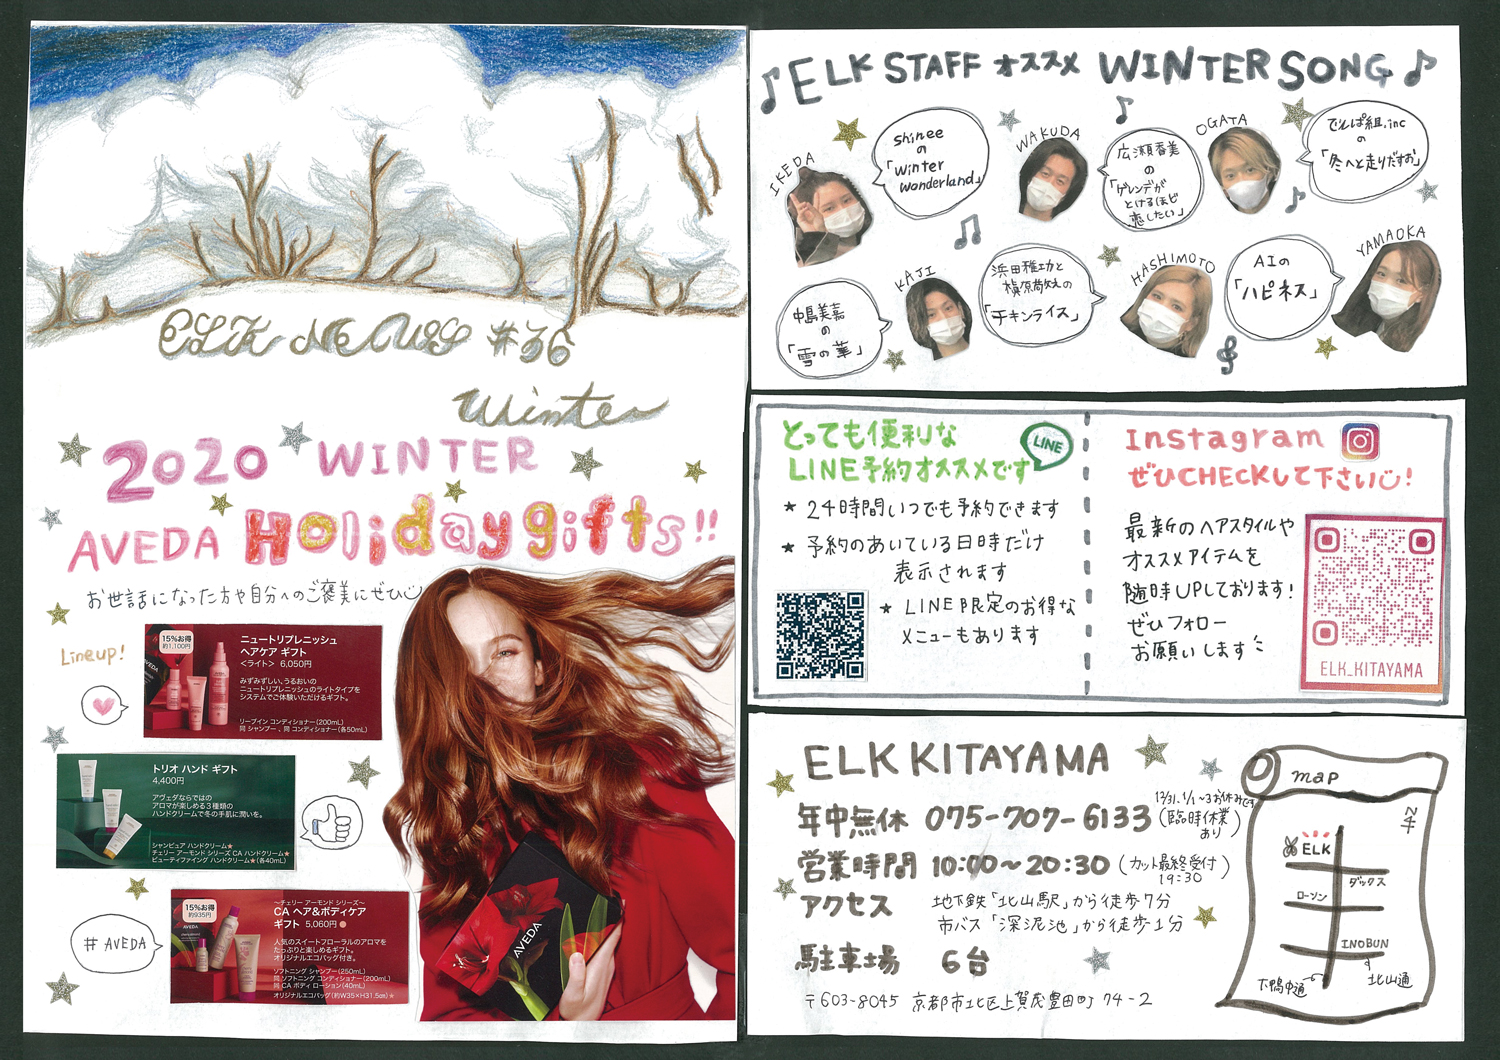 ELK NEWS #36
Winter
2020 WINTER
AVEDA Holiday gifts!!
お世話になった方や自分へのご褒美にぜひ
Lineup!
15%お得
約1,100円
ニュートリプレニッシュ
ヘアケア ギフト
<ライト> 6,050円
みずみずしい、うるおいの
ニュートリプレニッシュのライトタイプを
システムでご体験いただけるギフト。
リーブイン コンディショナー(200mL)
同 シャンプー 、同 コンディショナー(各50mL)
トリオ ハンド ギフト
4,400円
アヴェダならではの
アロマが楽しめる3種類の
ハンドクリームで冬の手肌に潤いを。
シャンピュア ハンドクリーム★
チェリー アーモンド シリーズ CA ハンドクリーム★
ビューティファイング ハンドクリーム★(各40mL)
# AVEDA
15%お得
約935円
〜チェリー アーモンド シリーズ〜
CA ヘア&ボディケア
ギフト 5,060円
人気のスイートフローラルのアロマを
たっぷりと楽しめるギフト。
オリジナルエコバッグ付き。
ソフトニング シャンプー(250mL)
同 ソフトニング コンディショナー(200mL)
同 CA ボディ ローション(40mL)
オリジナルエコバッグ(約W35×H31.5cm)★
AVEDA
♪ELK STAFF オススメ WINTER SONG♪
IKEDA
Shinee
の
「Winter
wonderland」
WAKUDA
広瀬香美
の
「ゲレンデが
とけるほど
恋したい」
OGATA
でんぱ組.inc
の
「冬へと走りだすお」
中島美嘉
の
「雪の華」
KAJI
浜田雅功と
槇原敬之の
「チキンライス」
HASHIMOTO
AIの
「ハピネス」
YAMAOKA
とっても便利な
LINE予約オススメです
LINE
★ 24時間いつでも予約できます
★ 予約のあいている日時だけ
表示されます
★ LINE限定のお得な
メニューもあります
Instagram
ぜひCHECKして下さい!
最新のヘアスタイルや
オススメアイテムを
随時UPしております!
ぜひフォロー
お願いします
ELK_KITAYAMA
ELK KITAYAMA
年中無休 075-707-6133
12/31、1/1〜3お休みです
(臨時休業
あり)
営業時間 10:00〜20:30 (カット最終受付)
19:30
アクセス 地下鉄「北山駅」から徒歩7分
市バス「深泥池」から徒歩1分
駐車場 6台
〒603-8045 京都市北区上賀茂豊田町74-2
map
ELK
ダックス
ローソン
INOBUN
下鴨中通
北山通